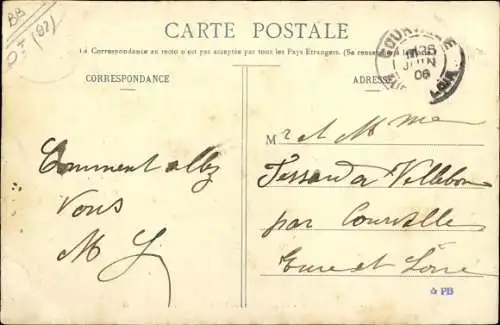 BB
(02)
CARTE POSTALE
La Correspondance au recto n'est pas acceptée par tous les Pays Étrangers. (Se renseigner à la Poste)
CORRESPONDANCE
ADRESSE
28
JUIN
06
Comment allez
Vous
M
Mr et Mme
à Villebon
par Courville
Eure et Loire
PB